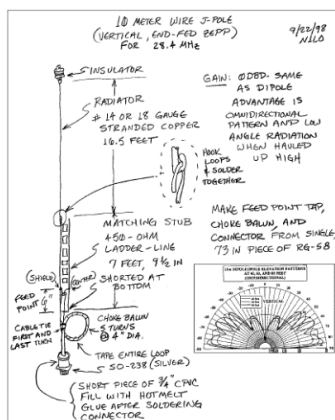 10 METER WIRE J-POLE
(VERTICAL, END-FED ZEPP)
FOR 28.4 MHz
9/22/98
N1LO
INSULATOR
RADIATOR
#14 OR 18 GAUGE
STRANDED COPPER
16.5 FEET
GAIN: 0DBD. SAME
AS DIPOLE
ADVANTAGE IS
OMNIDIRECTIONAL
PATTERN AND LOW
ANGLE RADIATION
WHEN HAULED
UP HIGH
HOOK
LOOPS
& SOLDER
TOGETHER
MATCHING STUB
450-OHM
LADDER-LINE
7 FEET, 9 1/2 IN
SHORTED AT
BOTTOM
MAKE FEED POINT TAP,
CHOKE BALUN, AND
CONNECTOR FROM SINGLE,
73 IN PIECE OF RG-58
(SHIELD)
(CENTER)
FEED
POINT 6"
CABLE TIE
FIRST AND
LAST TURN
CHOKE BALUN
5 TURNS
@ 4" DIA.
TAPE ENTIRE LOOP
SO-238 (SILVER)
SHORT PIECE OF 3/4" CPVC
FILL WITH HOTMELT
GLUE AFTER SOLDERING
CONNECTOR